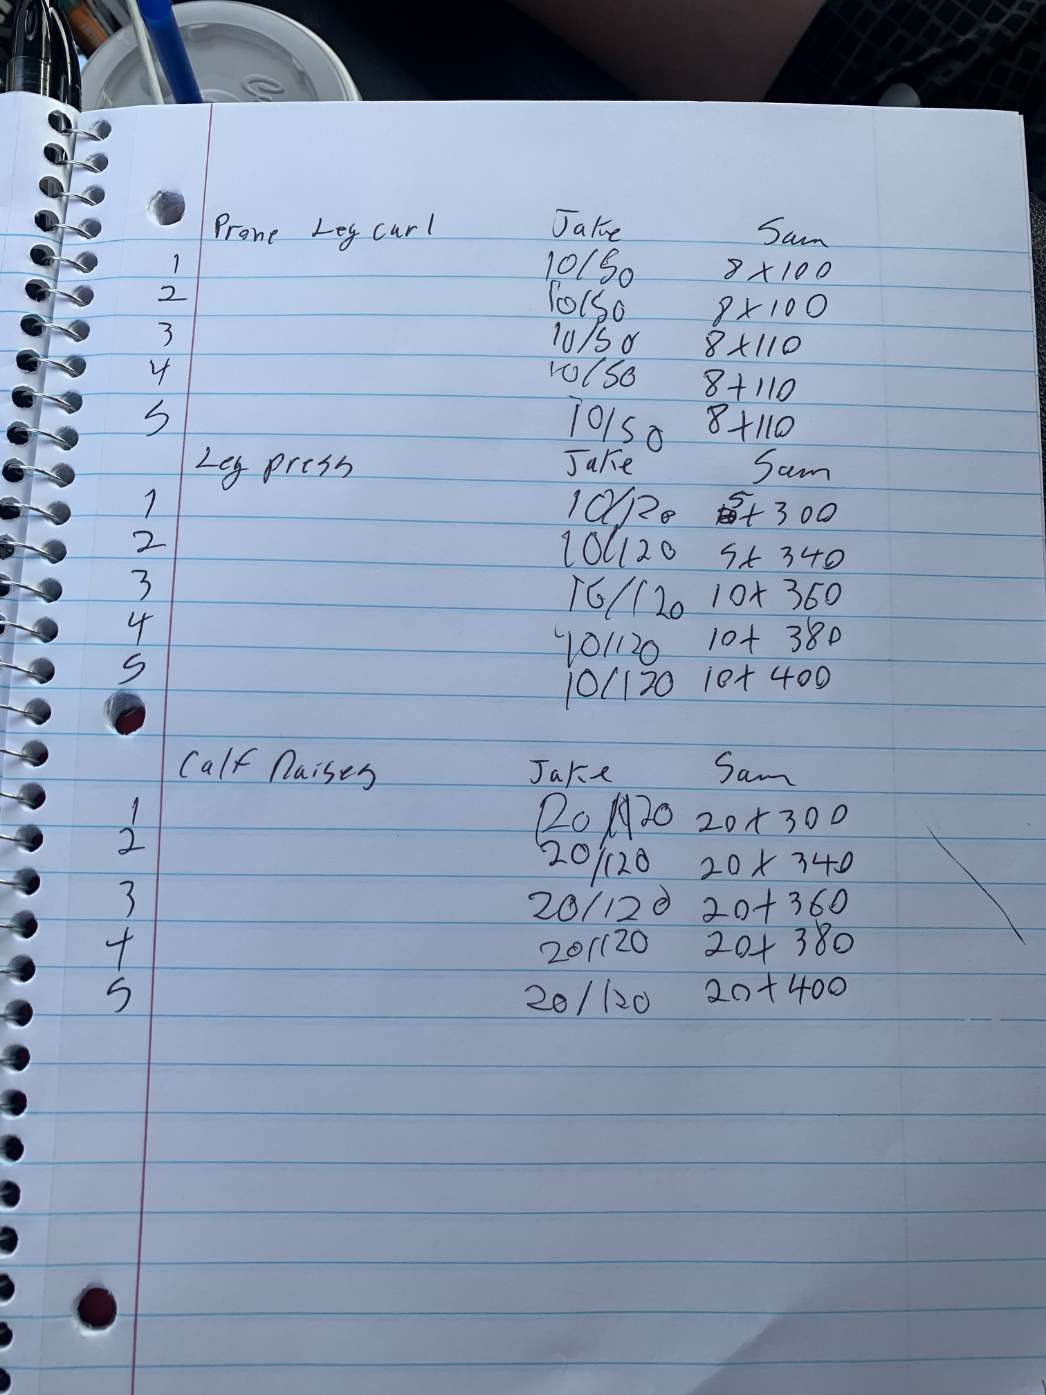 Prone Leg Curl Jake Sam
1 10/50 8x100
2 10/50 8x100
3 10/50 8x110
4 10/50 8x110
5 10/50 8x110
Leg press Jake Sam
1 10/120 5x300
2 10/120 5x340
3 10/120 10x360
4 10/120 10x380
5 10/120 10x400
Calf Raises Jake Sam
1 20/120 20x300
2 20/120 20x340
3 20/120 20x360
4 20/120 20x380
5 20/120 20x400